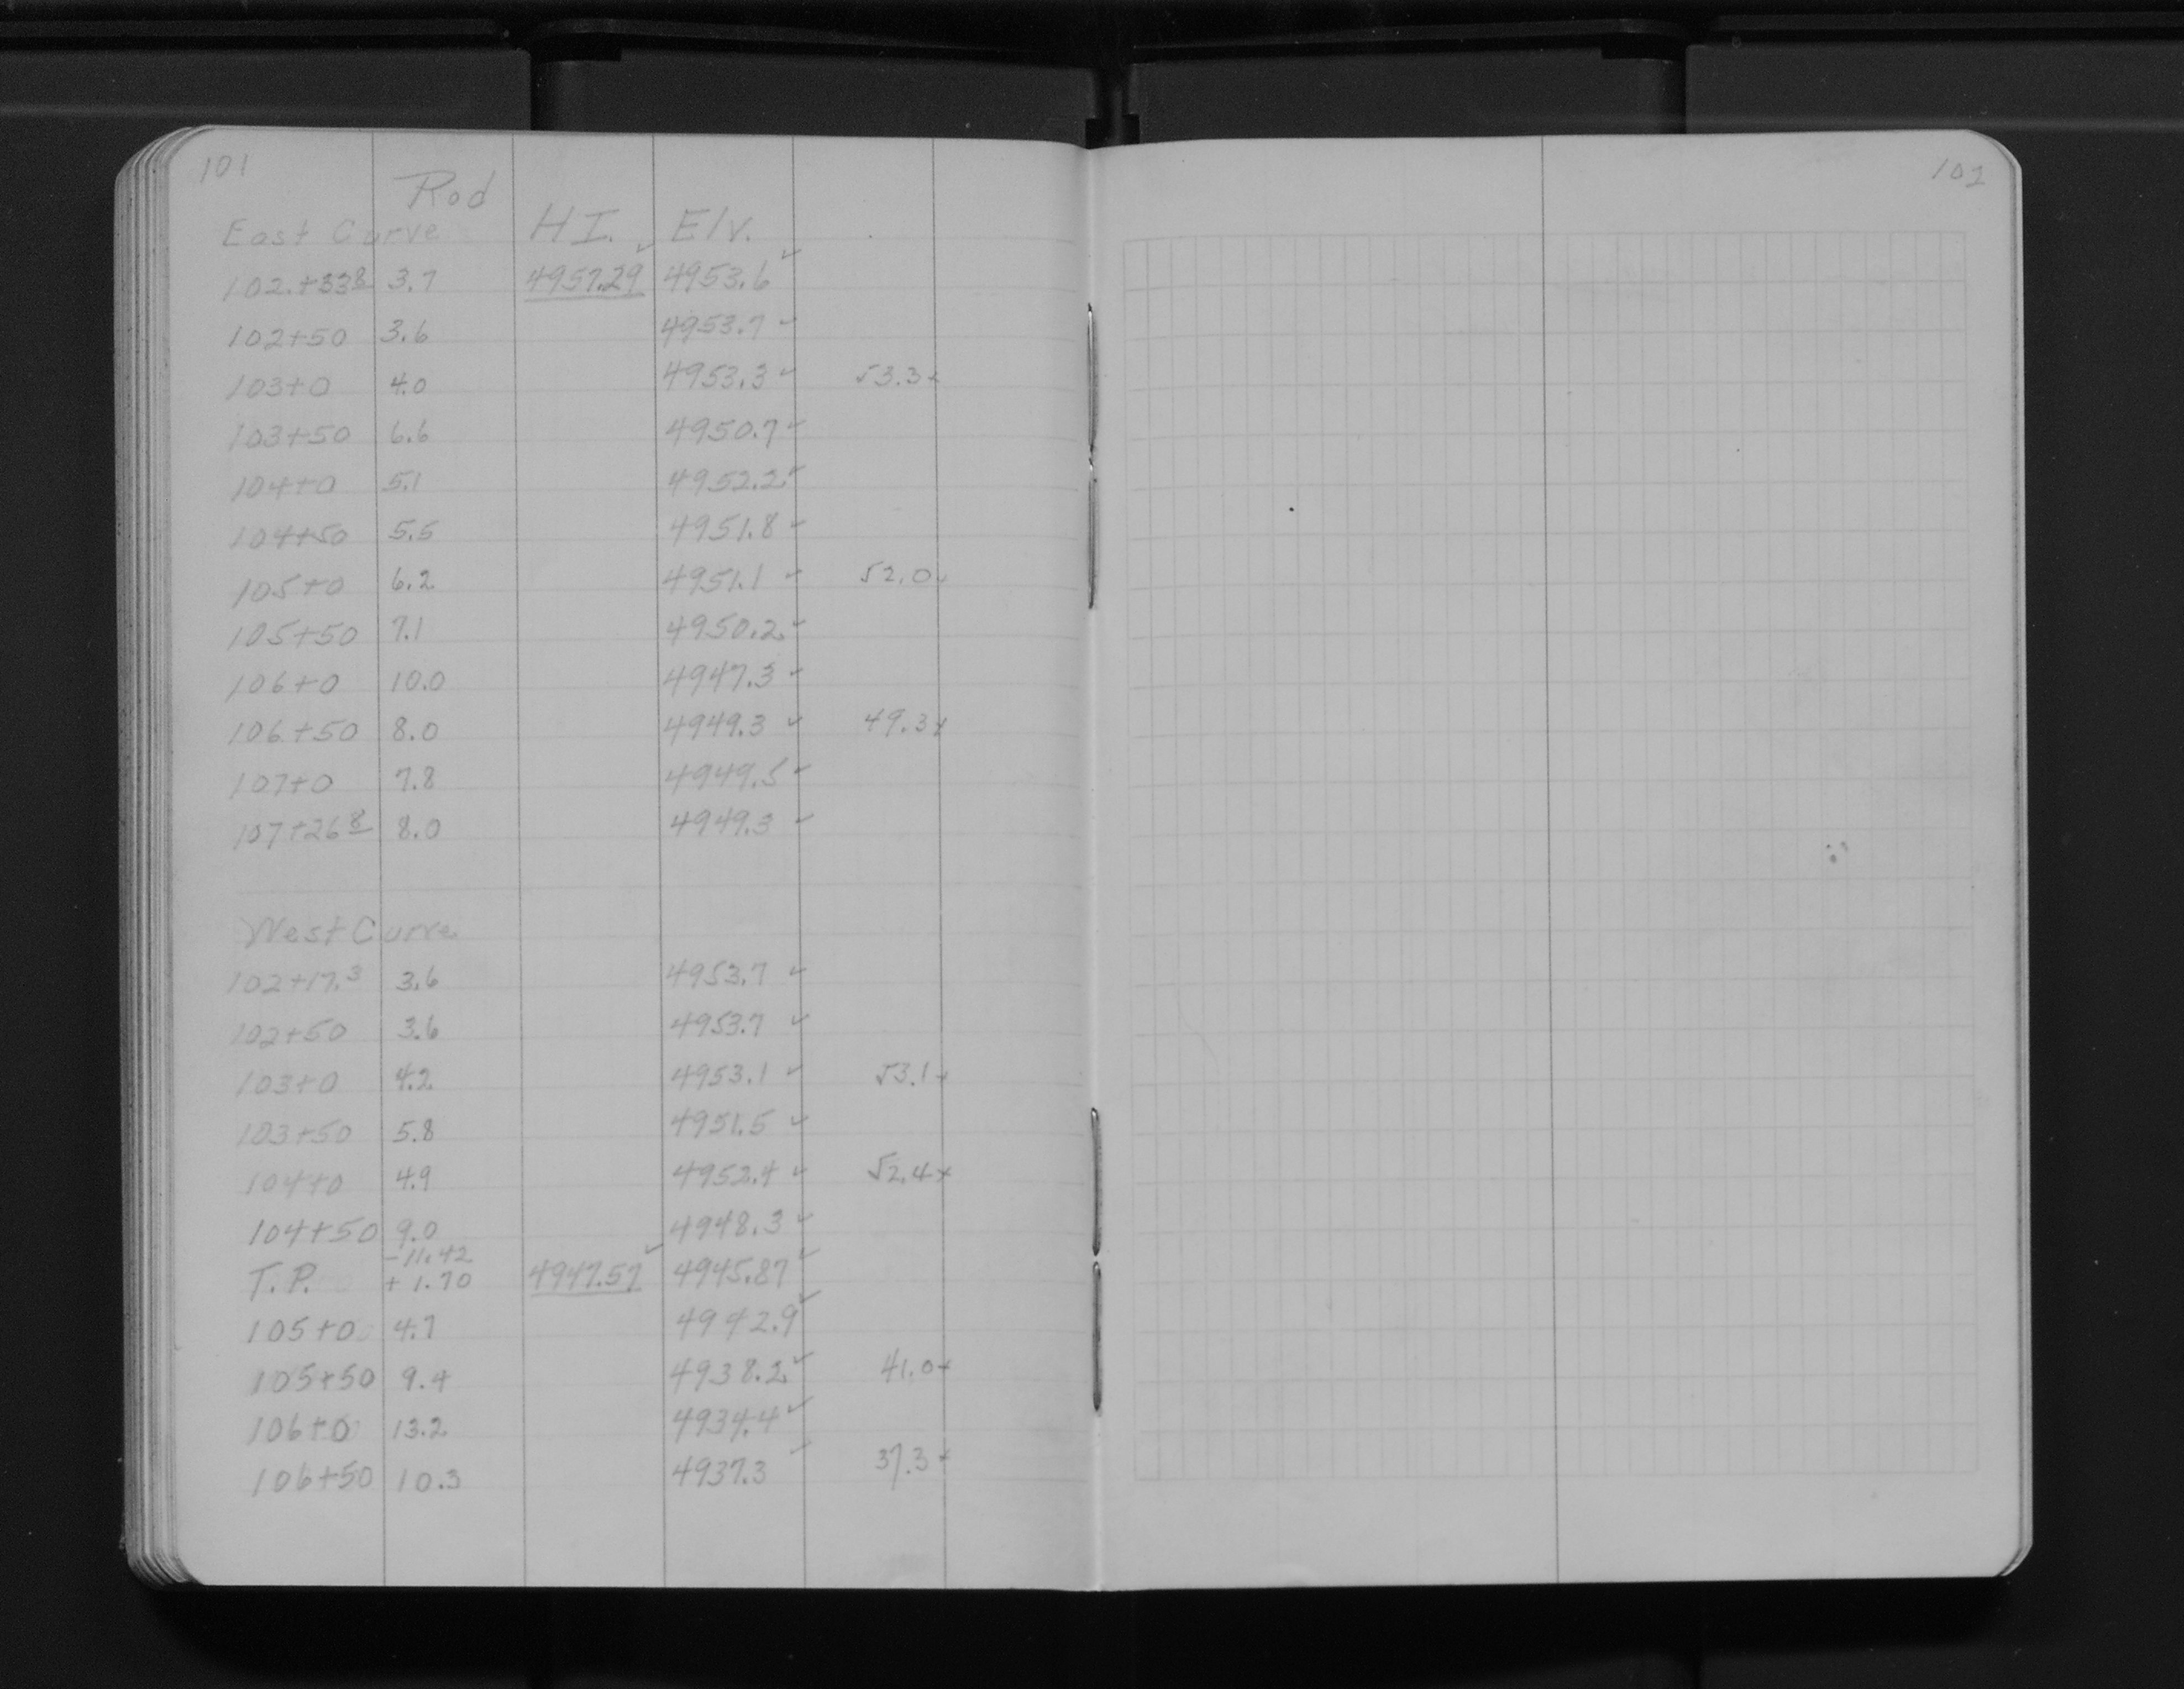 101
Rod
East Curve H I. ✓ Elv.
102.+33⁸ 3.7 4957.29 4953.6 ✓
102+50 3.6 4953.7 ✓
103+0 4.0 4953.3 ✓ 53.3x
103+50 6.6 4950.7 ✓
104+0 5.1 4952.2 ✓
104+50 5.5 4951.8 ✓
105+0 6.2 4951.1 ✓ 52.0x
105+50 7.1 4950.2 ✓
106+0 10.0 4947.3 ✓
106+50 8.0 4949.3 ✓ 49.3x
107+0 7.8 4949.5 ✓
107+26⁸ 8.0 4949.3 ✓
West Curve
102+17.³ 3.6 4953.7 ✓
102+50 3.6 4953.7 ✓
103+0 4.2 4953.1 ✓ 53.1x
103+50 5.8 4951.5 ✓
104+0 4.9 4952.4 ✓ 52.4x
104+50 9.0 4948.3 ✓
-11.42
T.P. +1.70 4947.57 ✓ 4945.87 ✓
105+0 4.7 4942.9 ✓
105+50 9.4 4938.2 ✓ 41.0x
106+0 13.2 4934.4 ✓
106+50 10.3 4937.3 ✓ 37.3x
102